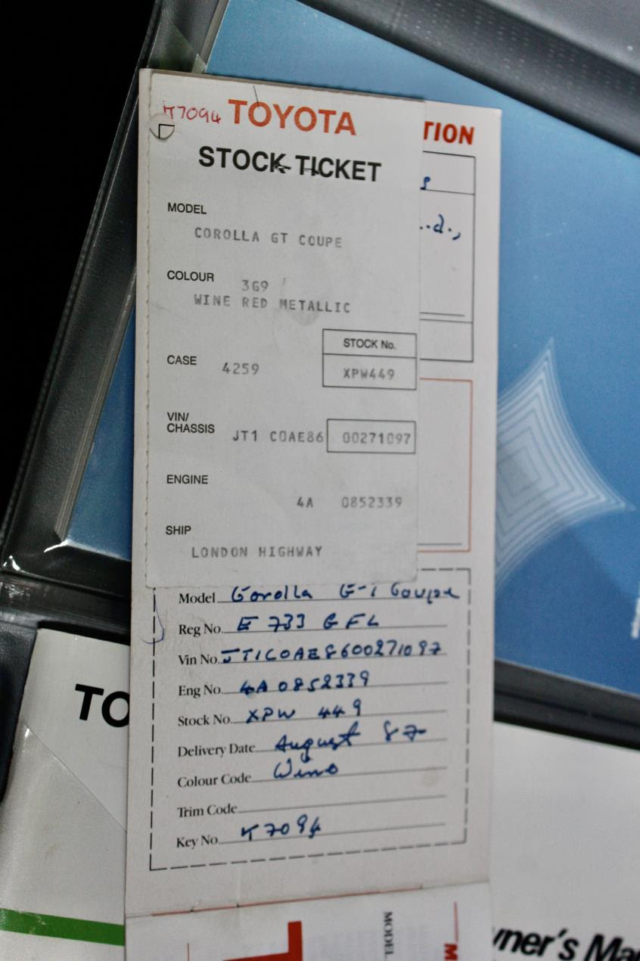 T7094 TOYOTA
STOCK TICKET
TION
MODEL
COROLLA GT COUPE
COLOUR 3G9
WINE RED METALLIC
STOCK No.
CASE 4259 XPW449
VIN/
CHASSIS JT1 COAE86 00271097
ENGINE
4A 0852339
SHIP
LONDON HIGHWAY
Model Corolla GT Coupe
Reg No E 733 GFL
Vin No. JT1COAE8600271097
Eng No. 4A0852339
Stock No. XPW 449
Delivery Date August 87
Colour Code Wine
Trim Code
Key No. T7094
TO
MODEL
M
wner's Ma